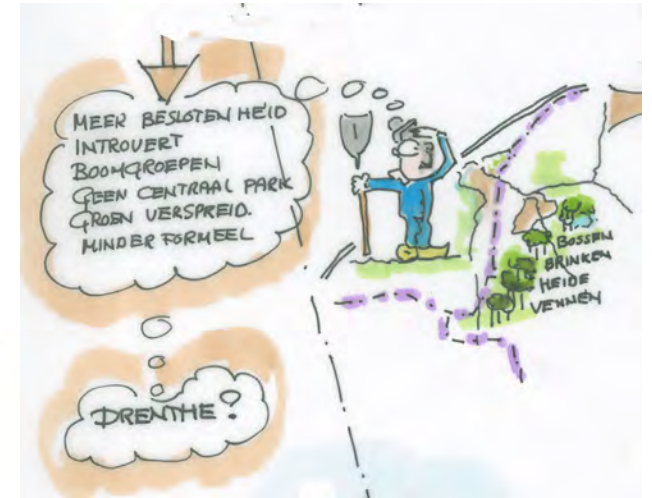 MEER BESLOTENHEID
INTROVERT
BOOMGROEPEN
GEEN CENTRAAL PARK
GROEN VERSPREID.
MINDER FORMEEL
DRENTHE?
BOSSEN
BRINKEN
HEIDE
VENNEN